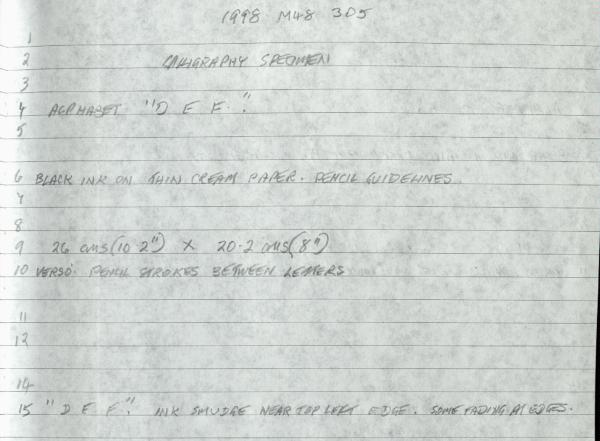 1998 M48 305
1
2 CALLIGRAPHY SPECIMEN
3
4 ALPHABET "D E F."
5
6 BLACK INK ON THIN CREAM PAPER. PENCIL GUIDELINES
7
8
9 26 cms (10.2") X 20.2 cms (8")
10 VERSO: PENCIL STROKES BETWEEN LETTERS
11
12
14
15 "D E F". INK SMUDGE NEAR TOP LEFT EDGE. SOME FADING AT EDGES.